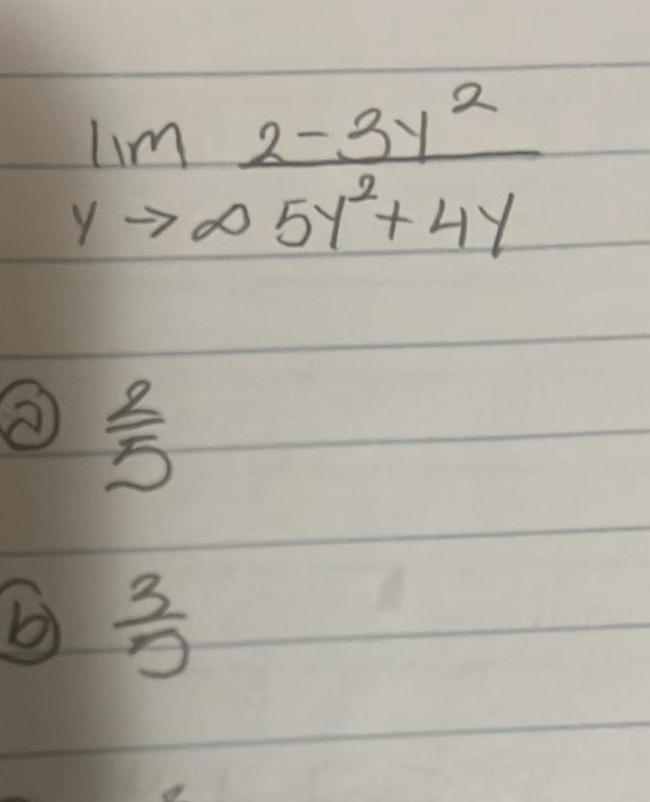 lim 2-3y²
y → ∞ 5y²+4y
ⓐ 2/5
ⓑ 3/5